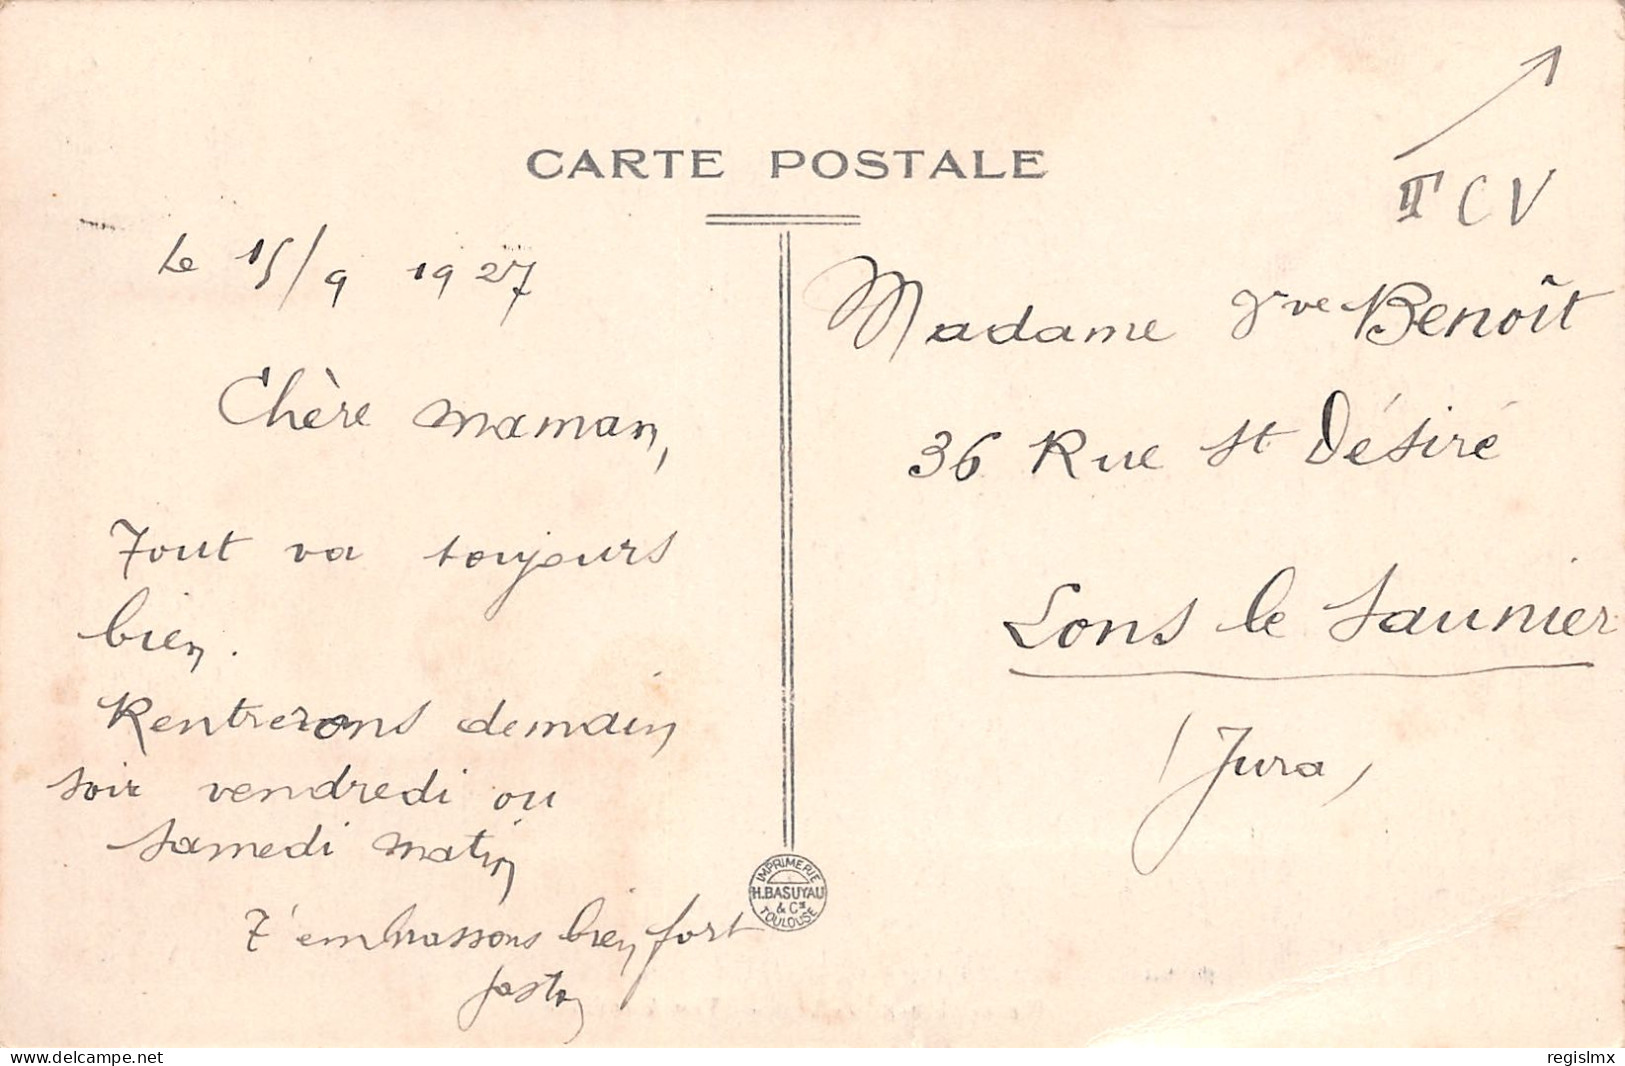 CARTE POSTALE
II CV
Le 15/9 1927
Chère maman,
Tout va toujours
bien.
Rentrerons demain
soir vendredi ou
samedi matin
T'embrassons bien fort
Madame Vve Benoît
36 Rue St Désiré
Lons le Saunier
(Jura)
IMPRIMERIE
H. BASUYAU
& Cie
TOULOUSE
delcampe.net
regislmx